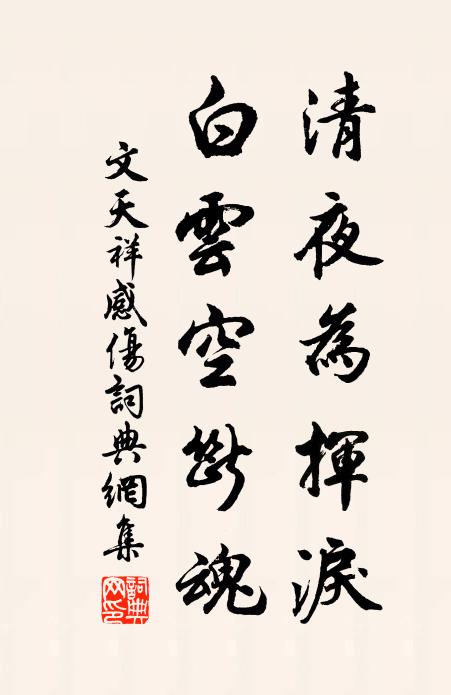 清夜為揮淚
白雲空斷魂
文天祥感傷詞典網集
詞典網印